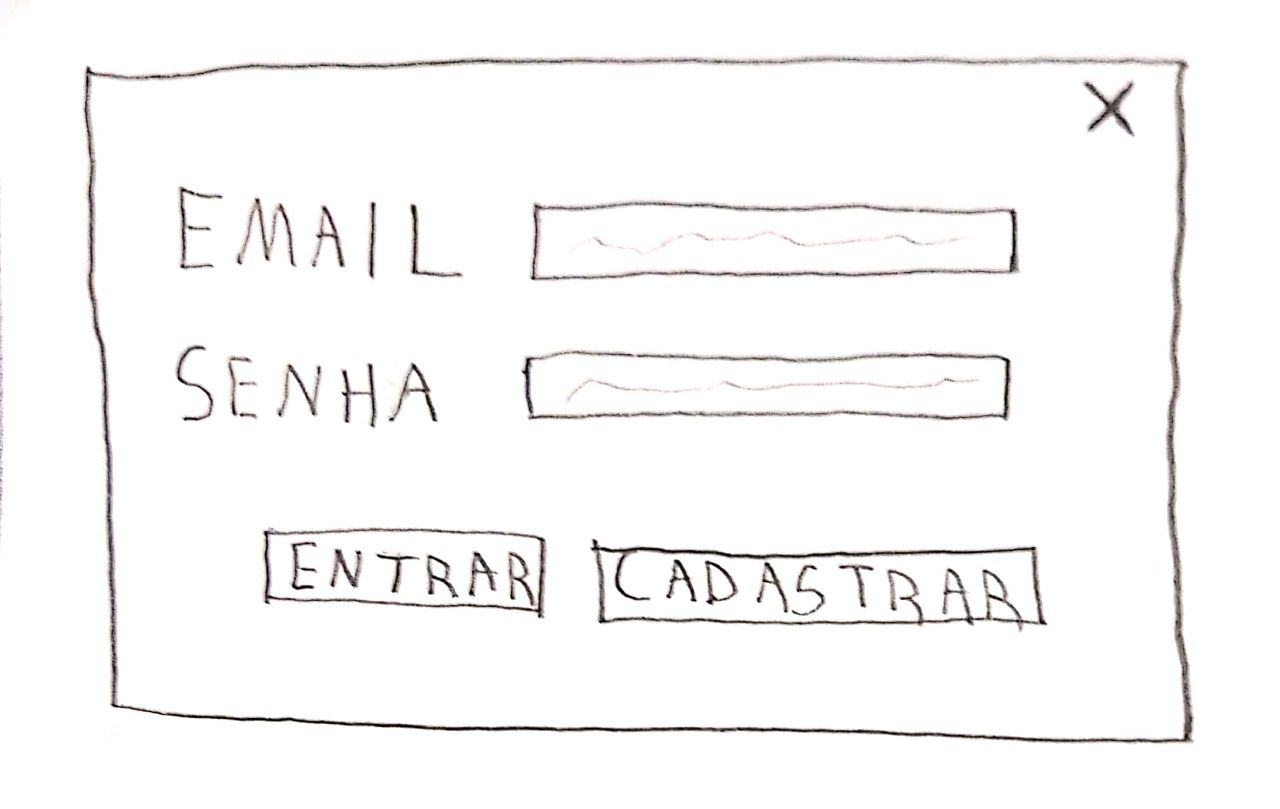 X
EMAIL
SENHA
ENTRAR CADASTRAR